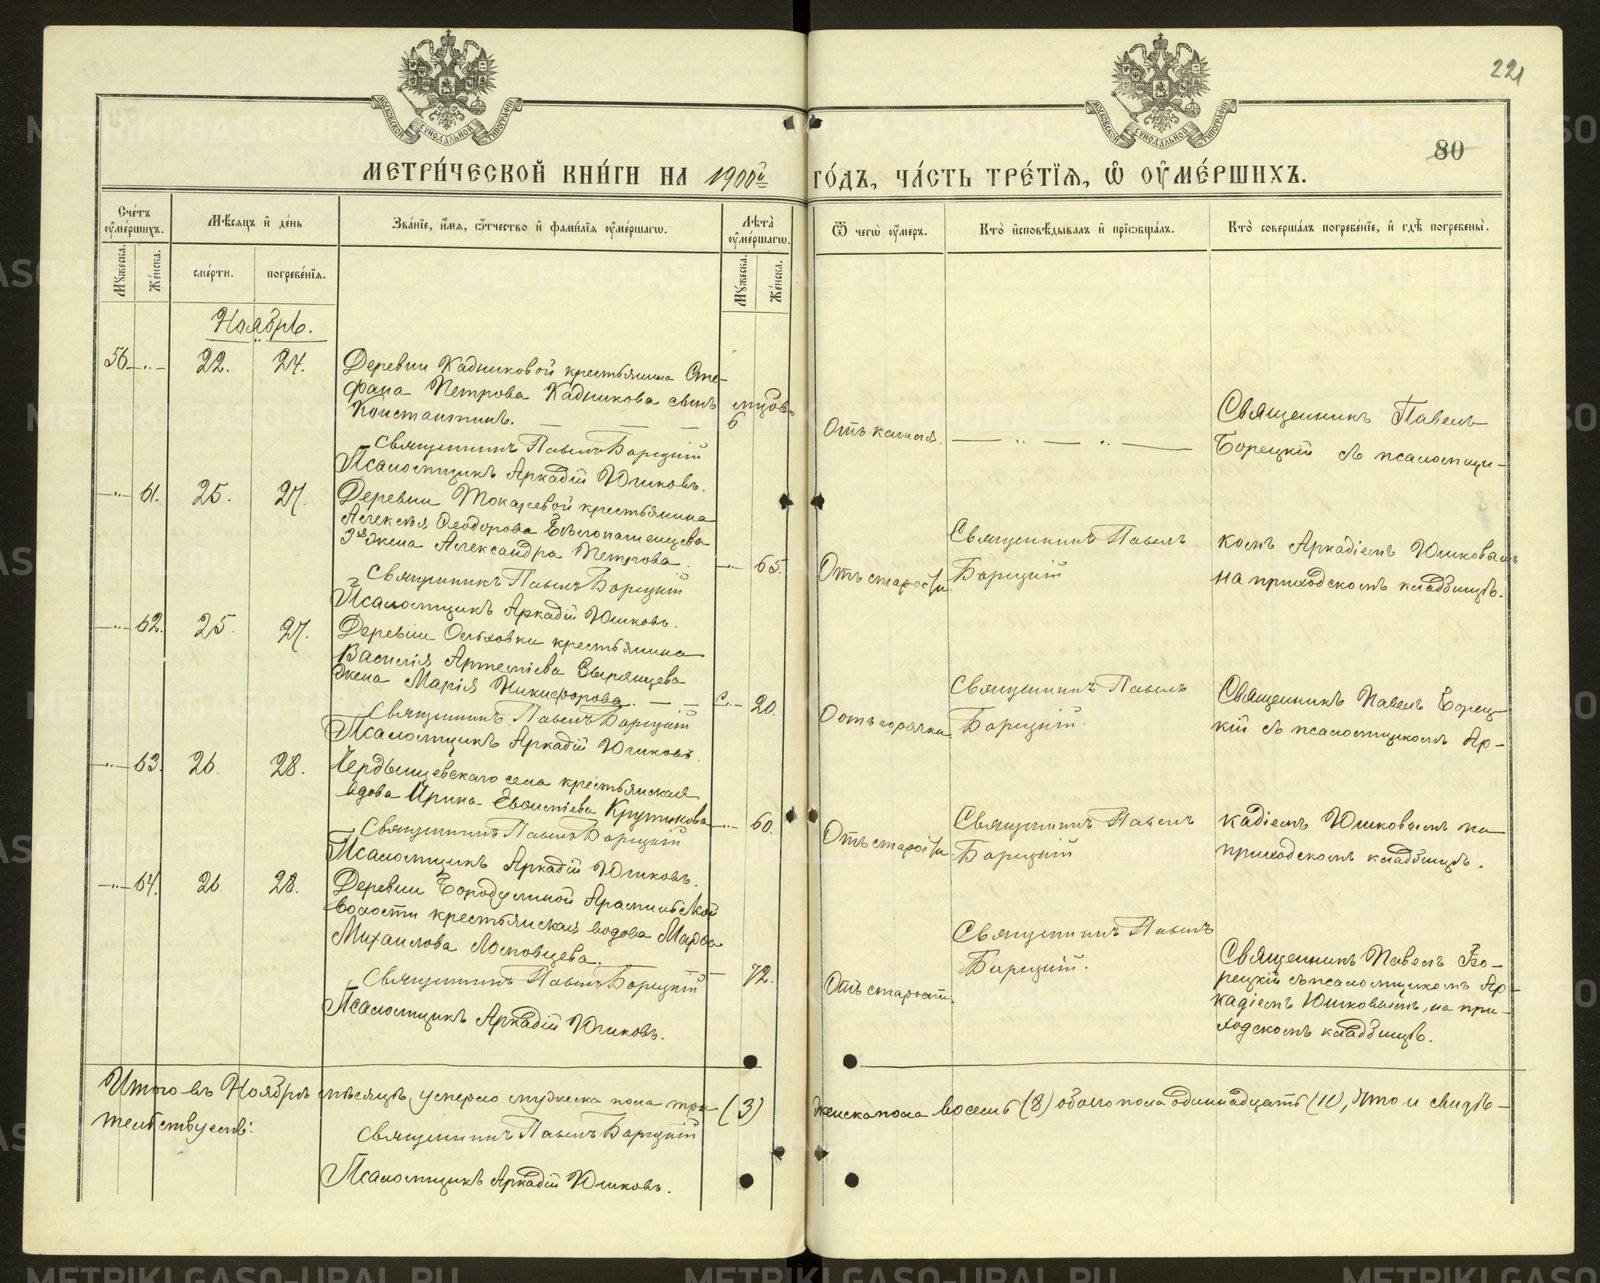 221
80
МЕТРИ́ЧЕСКОЙ КНИ́ГИ НА 1900й ГО́ДЪ, ЧА́СТЬ ТРЕ́ТІѦ, Ѡ҆ ОУ҆МЕ́РШИХЪ.
Сче́тъ оу҆ме́ршихъ.
Мѣ́сѧцъ и҆ де́нь
Зва́нїе, и҆́мѧ, ѻ҆́тчество и҆ фами́лїѧ оу҆ме́ршагѡ.
Лѣ́та оу҆ме́ршагѡ.
Ѿ чегѡ̀ оу҆́меръ.
Кто̀ и҆сповѣ́дывалъ и҆ прїѡбща́лъ.
Кто̀ соверша́лъ погребе́нїе, и҆ гдѣ̀ погребены̀.
Мꙋ́жеска.
Же́нска.
сме́рти.
погребе́нїѧ.
Мꙋ́жеска.
Же́нска.
Ноябрь.
56 22. 24. Деревни Кадниковой крестьянина Сте-
фана Петрова Кадникова сынъ
Константинъ. 6
Священникъ Павелъ Борецкій
Псаломщикъ Аркадій Юшковъ.
Отъ кашля.
Священникъ Павелъ
Борецкій съ псаломщи-
61. 25. 27. Деревни Токаревой крестьянина
Алексѣя Ѳеодорова Бѣлопашенцева
жена Александра Петрова. 65.
Священникъ Павелъ Борецкій
Псаломщикъ Аркадій Юшковъ.
Отъ старости
Священникъ Павелъ
Борецкій
комъ Аркадіемъ Юшковымъ
на приходскомъ кладбищѣ.
62. 25. 27. Деревни Ольховки крестьянина
Василія Артеміева Зырянцева
жена Марія Никифорова. 20.
Священникъ Павелъ Борецкій
Псаломщикъ Аркадій Юшковъ.
горячки
Священникъ Павелъ
Борецкій.
Священникъ Павелъ Борец-
кій съ псаломщикомъ Ар-
63. 26. 28. Чердынцевскаго села крестьянская
вдова Ирина Крутикова 60.
Священникъ Павелъ Борецкій
Псаломщикъ Аркадій Юшковъ.
Отъ старости
Священникъ Павелъ
Борецкій
кадіемъ Юшковымъ на
приходскомъ кладбищѣ.
64. 26 28. Деревни Бородулиной Арамильской
волости крестьянская вдова Марѳа
Михаилова 72.
Священникъ Павелъ Борецкій
Псаломщикъ Аркадій Юшковъ.
Отъ старости.
Священникъ Павелъ
Борецкій.
Священникъ Павелъ Бо-
рецкій съ псаломщикомъ Ар-
кадіемъ Юшковымъ, на при-
ходскомъ кладбищѣ.
Итого въ Ноябрѣ мѣсяцѣ умерло мужеска пола три (3) женска пола восемь (8) обоего пола одиннадцать (11), что и свидѣ-
тельствуемъ:
Священникъ Павелъ Борецкій
Псаломщикъ Аркадій Юшковъ.